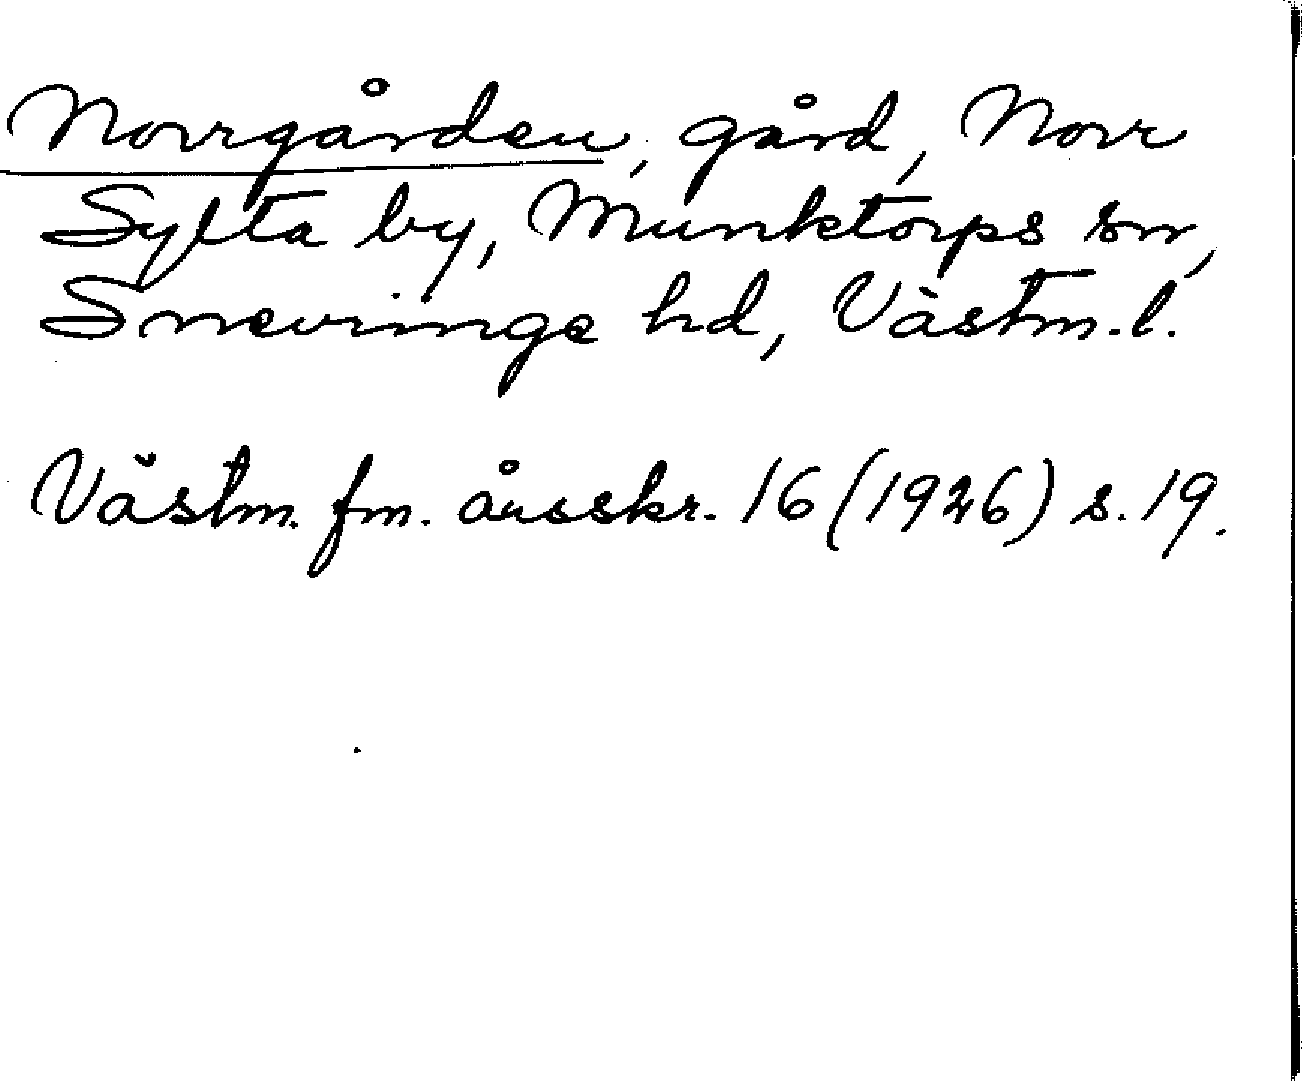 Norrgården, gård, Norr
Sylta by, Munktorps sn,
Snevringe hd, Västm.l.
Västm. fm. årsskr. 16 (1926) s. 19.